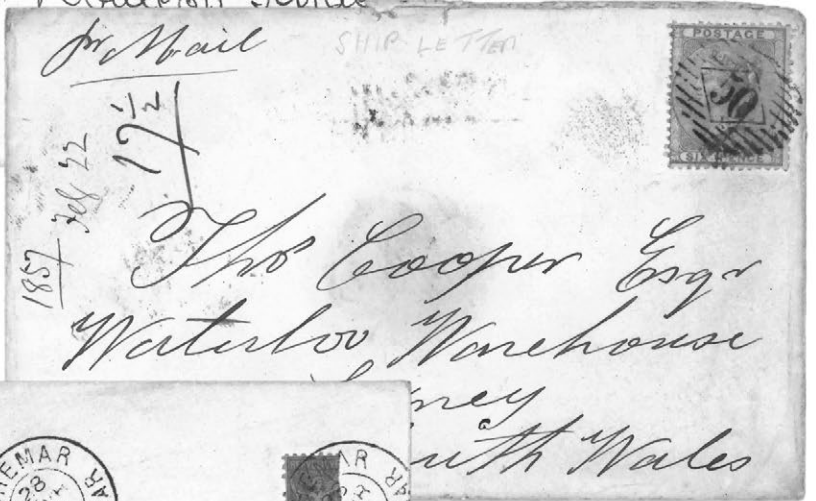 pr Mail
SHIP LETTER
POSTAGE
50
SIX PENCE
17½
1857 Feb 22
Thos Cooper Esqr
Waterloo Warehouse
ney
uth Wales
EMAR
28
AR